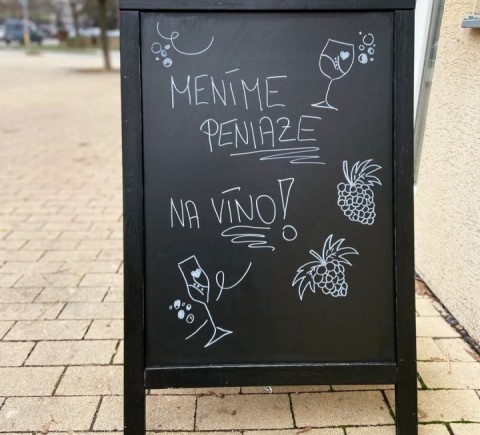 MENÍME
PENIAZE
NA VÍNO!